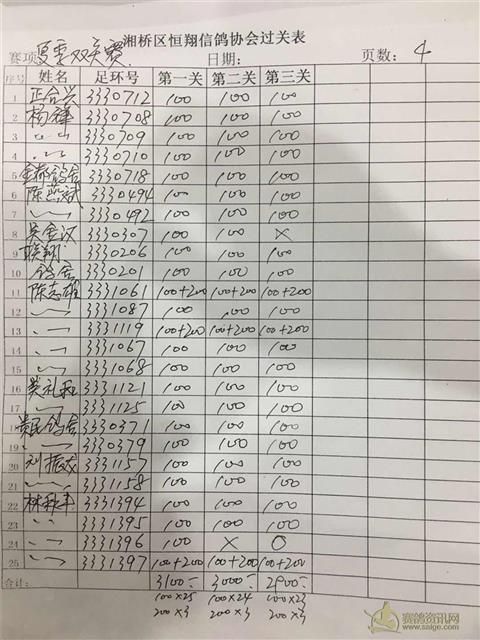 湘桥区恒翔信鸽协会过关表
赛项 夏季双关赛 日期: 页数: 4
序号 姓名 足环号 第一关 第二关 第三关
1 正合兴 3330712 100 100 100
2 杨锋 3330708 100 100 100
3 〃 3330709 100 100 100
4 〃 3330710 100 100 100
5 鸽舍 3330718 100 100 100
6 陈燕斌 3330494 100 100 100
7 〃 3330492 100 100 100
8 吴金汉 3330307 100 100 ×
9 联翔 3330206 100 100 100
10 鸽舍 3330201 100 100 100
11 陈志雄 3331061 100+200 100+200 100+200
12 〃 3331087 100 100 100
13 〃 3331119 100+200 100+200 100+200
14 〃 3331067 100 100 100
15 〃 3331068 100 100 100
16 吴礼 3331121 100 100 100
17 〃 3331125 100 100 100
18 贵民鸽舍 3330371 100 100 100
19 〃 3330379 100 100 100
20 刘振 3331157 100 100 100
21 〃 3331158 100 100 100
22 林 3331394 100 100 100
23 〃 3331395 100 100 100
24 〃 3331396 100 × 0
25 〃 3331397 100+200 100+200 100+200
合计: 3100 3000 2900
100×25 100×24 100×23
200×3 200×3 200×3
赛鸽资讯网
www.saige.com